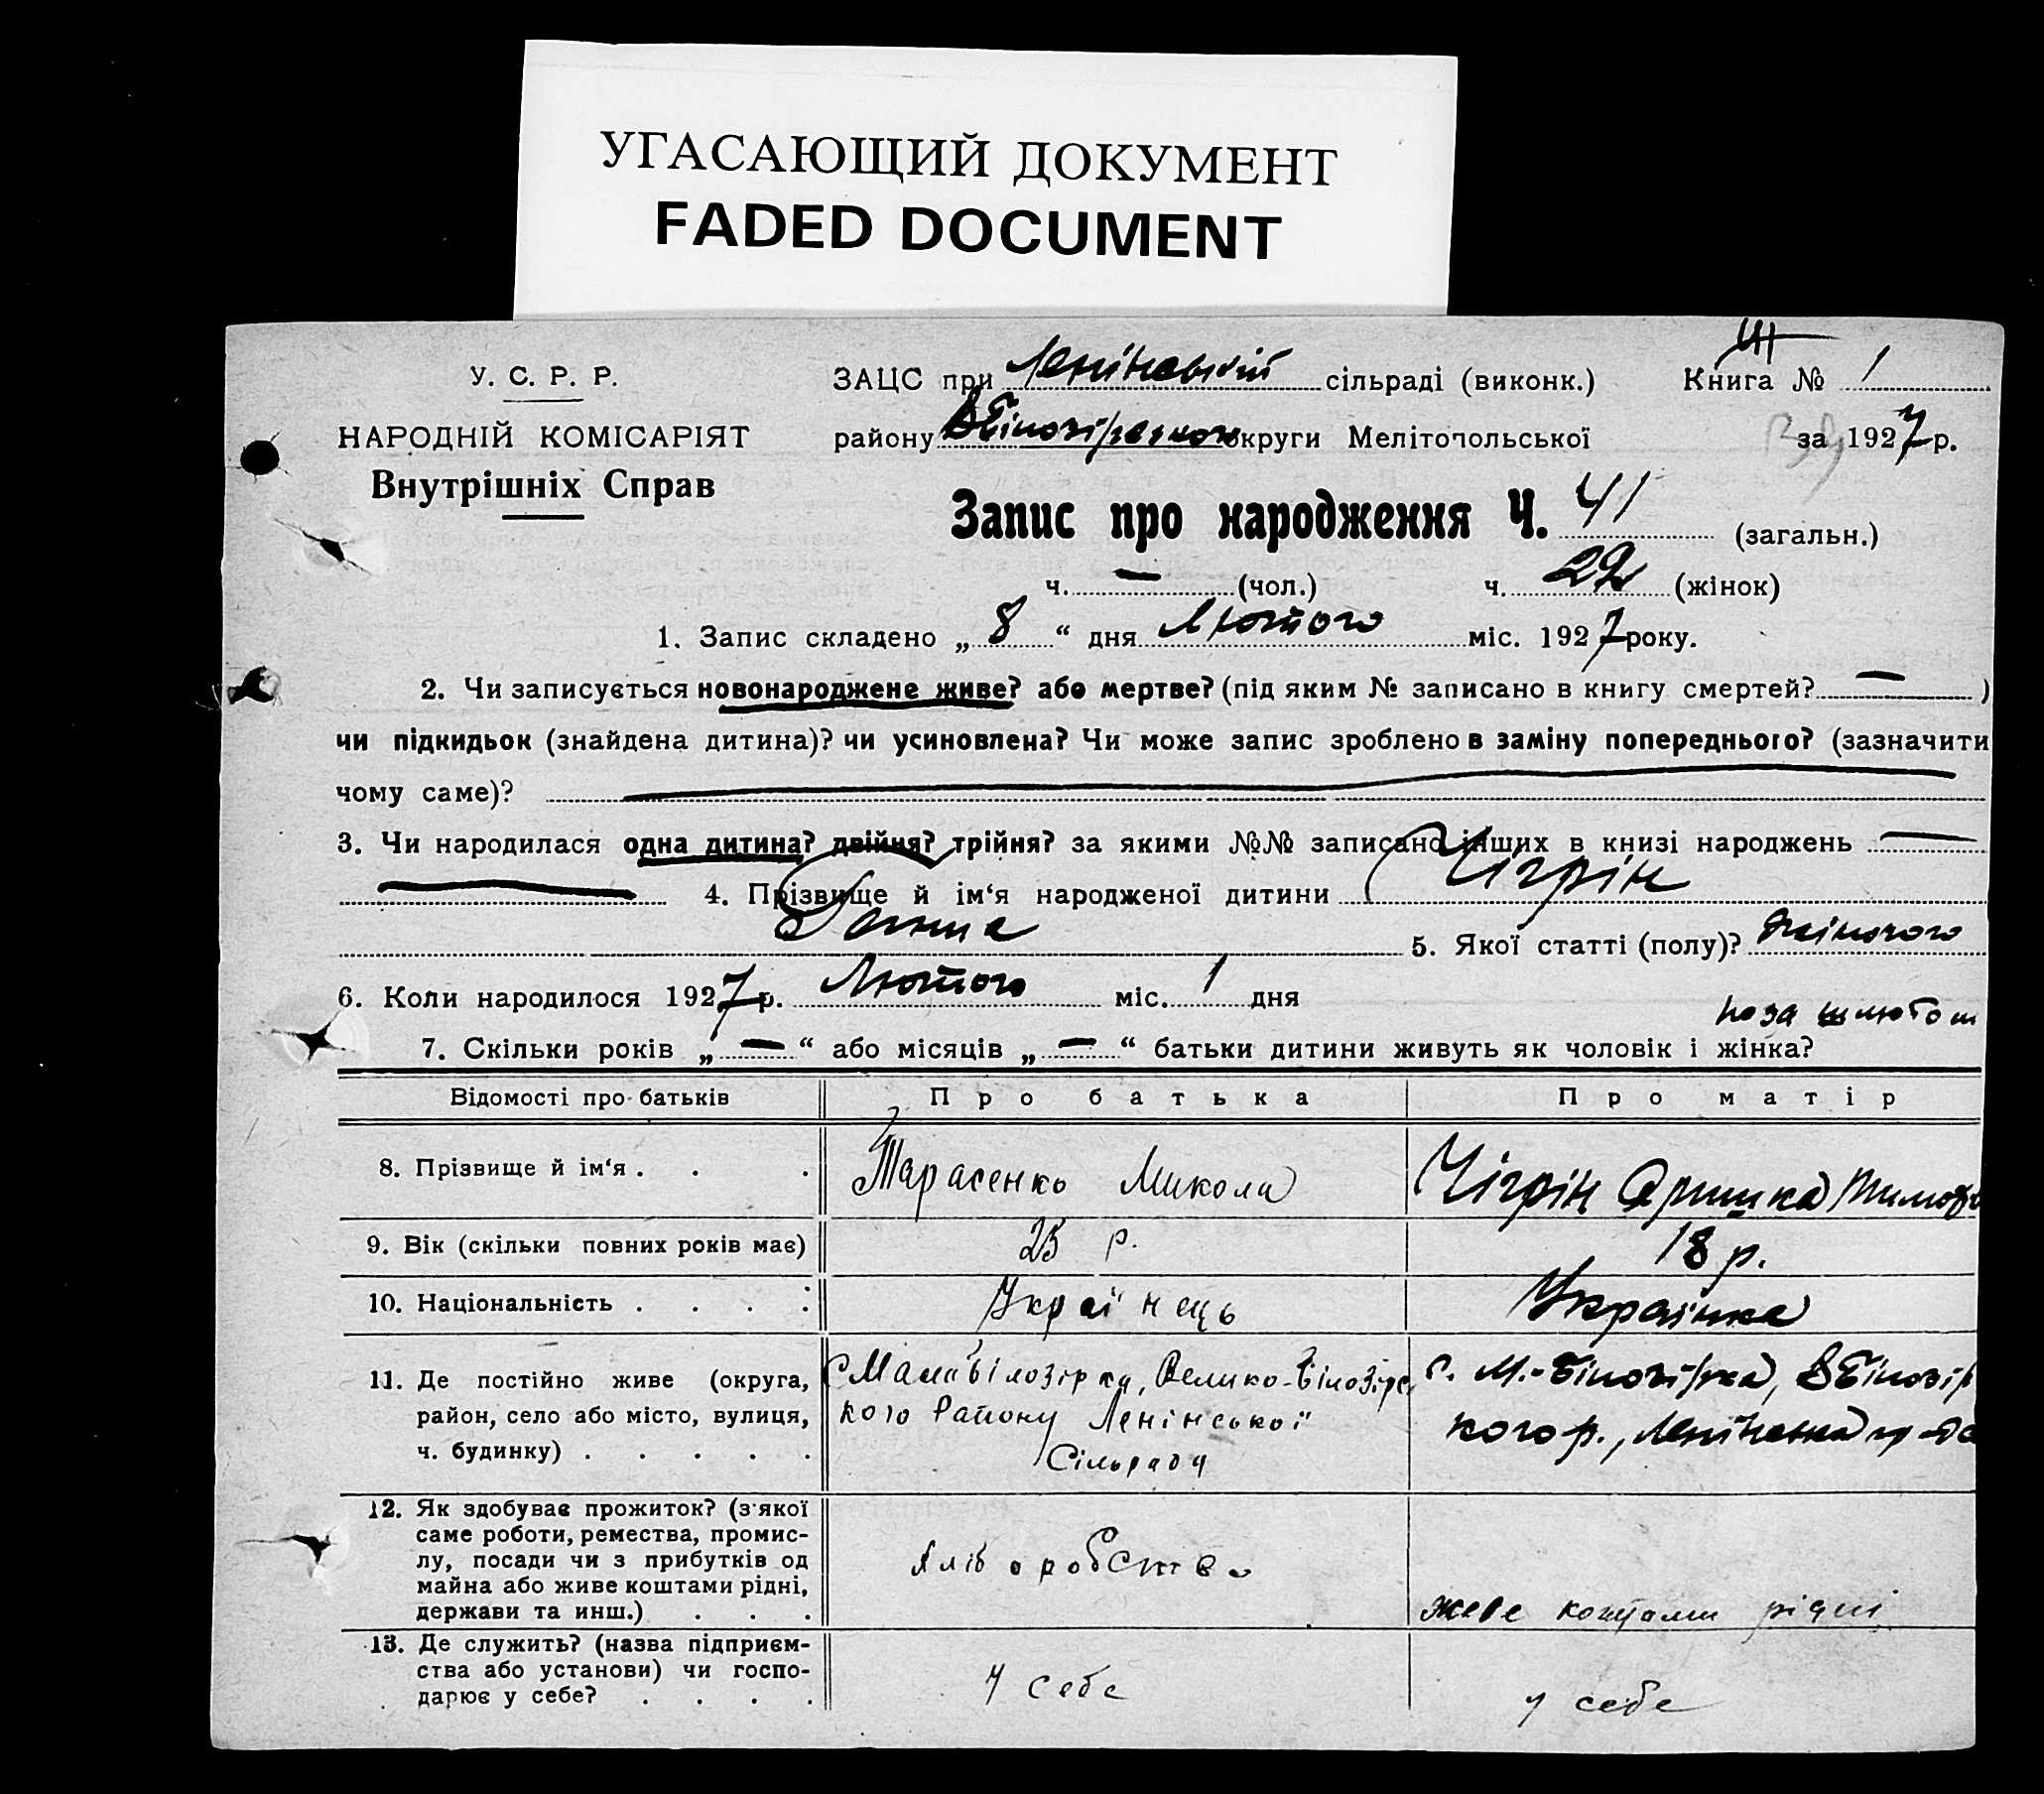 УГАСАЮЩИЙ ДОКУМЕНТ
FADED DOCUMENT
У. С. Р. Р.
НАРОДНІЙ КОМІСАРІЯТ
Внутрішніх Справ
ЗАЦС при Ленінській сільраді (виконк.) Книга № 1
району ВБілозірського округи Мелітопольської за 1927 р.
Запис про народження Ч. 41 (загальн.)
ч. — (чол.) ч. 22 (жінок)
1. Запис складено „ 8 “ дня Лютого міс. 1927 року.
2. Чи записується новонароджене живе? або мертве? (під яким № записано в книгу смертей? — )
чи підкидьок (знайдена дитина)? чи усиновлена? Чи може запис зроблено в заміну попереднього? (зазначити
чому саме)?
3. Чи народилася одна дитина? двійня? трійня? за якими №№ записано інших в книзі народжень —
— 4. Прізвище й ім‘я народженої дитини Чігрін
Ганна 5. Якої статті (полу)? Жіночого
6. Коли народилося 1927 р. Лютого міс. 1 дня
поза шлюбом
7. Скільки років „ — “ або місяців „ — “ батьки дитини живуть як чоловік і жінка?
Відомості про батьків Про батька Про матір
8. Прізвище й ім‘я . . . Тарасенко Микола Чігрін Оришка Тимоф
9. Вік (скільки повних років має) 25 р. 18 р.
10. Національність . . . . Українець Українка
11. Де постійно живе (округа, С Мала Білозірка, Велико-Білозірс с. М.-Білозірка, ВБілозір
район, село або місто, вулиця, кого Району Ленінської кого р., Ленінська
ч. будинку) . . . . . Сільрада
12. Як здобуває прожиток? (з якої
саме роботи, ремества, промис-
лу, посади чи з прибутків од Хліборобство
майна або живе коштами рідні,
держави та инш.) . . . живе коштами рідні
13. Де служить? (назва підприєм-
ства або установи) чи госпо- У себе
дарює у себе? . . . . у себе